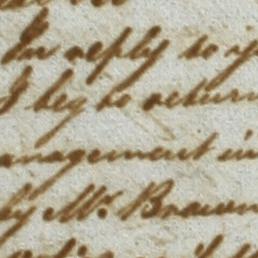 In reply to y
I beg to return
anagement in
by Mr. Brown